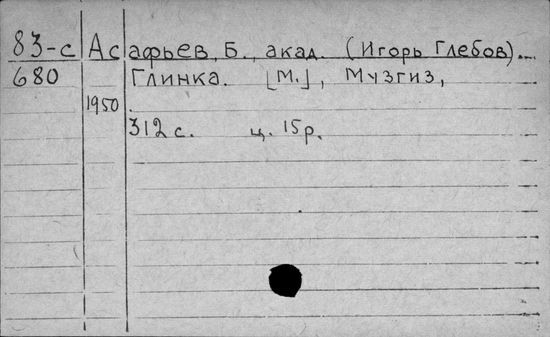 83-с Асафьев, Б., акад. (Игорь Глебов)...
680 Глинка. [М.], Музгиз,
1950.
312 с. ц. 15р.